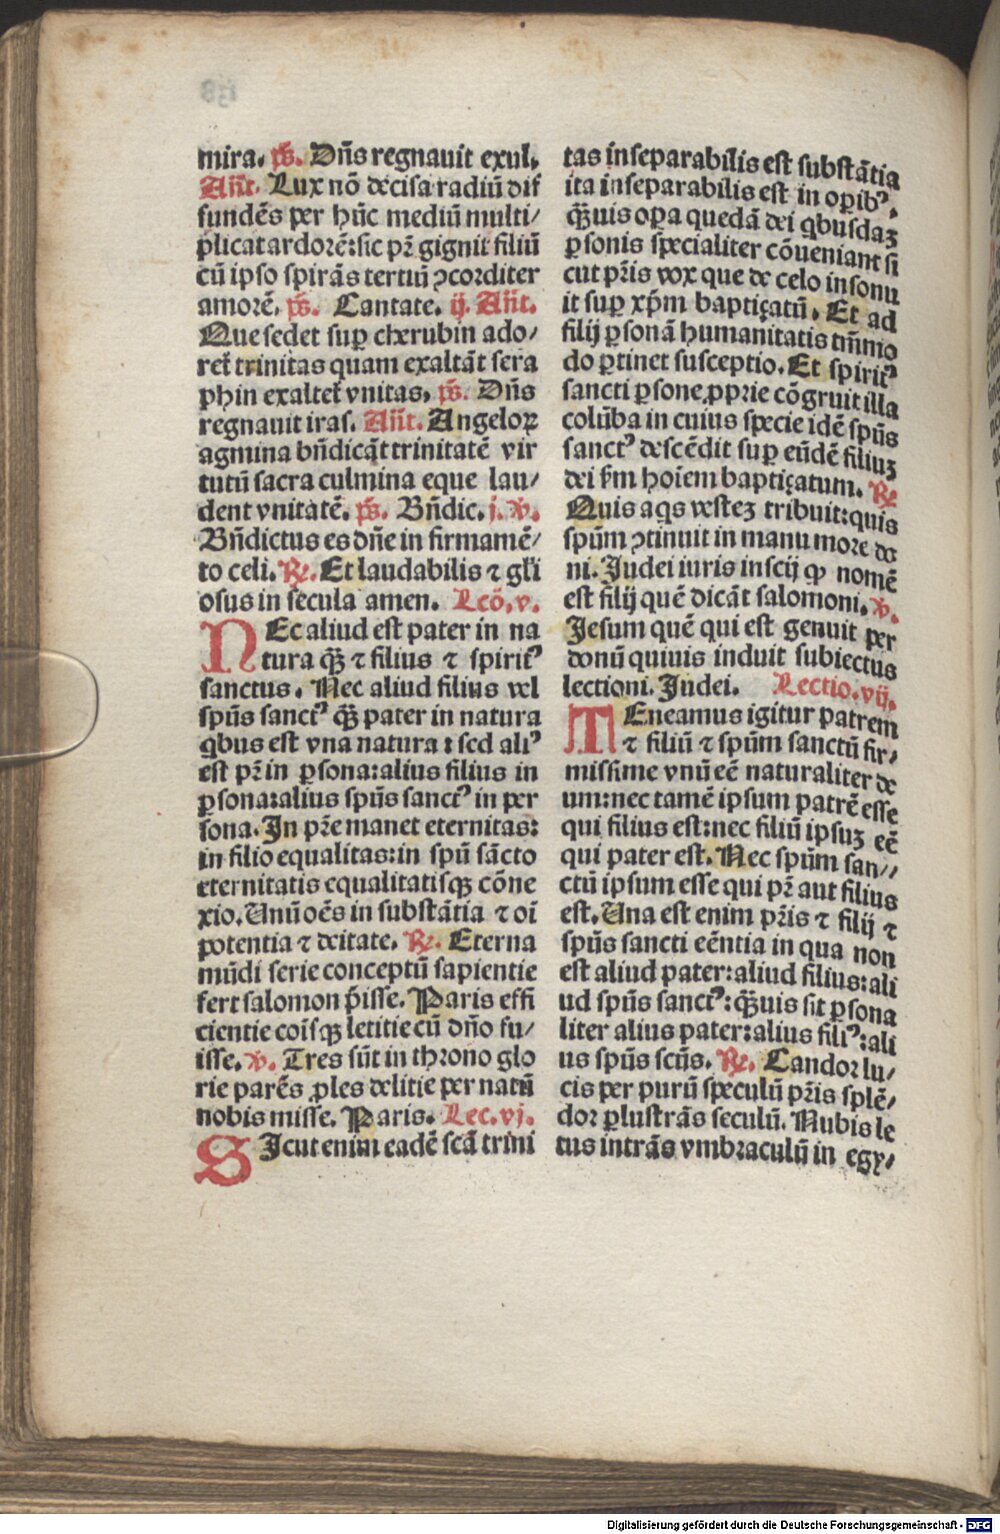 mira. p̄s. Dn̄s regnauit exul.
Añt. Lux nō decisa radiū dif
fundēs per hūc mediū multi/
plicat ardorē: sic pr̄ gignit filiū
cū ipso spirās tertiū ꝯcorditer
amorē. p̄s. Cantate. ij. Añt.
Que sedet suꝑ cherubin ado/
ret trinitas quam exaltāt sera
phin exaltet vnitas. p̄s. Dn̄s
regnauit iras. Añt. Angeloꝝ
agmina bn̄dicāt trinitatē vir
tutū sacra culmina eque lau/
dent vnitatē. p̄s. Bn̄dic. j. ℣.
Bn̄dictus es dn̄e in firmamē/
to celi. ℟. Et laudabilis ⁊ gl̄i
osus in secula amen. Lcō. v.
NEc aliud est pater in na
tura qꝫ̄ ⁊ filius ⁊ spiritꝰ
sanctus. Nec aliud filius vel
spūs sanctꝰ qꝫ̄ pater in natura
qbus est vna natura: sed aliꝰ
est pr̄ in ꝑsona: alius filius in
ꝑsona: alius spūs sanctꝰ in per
sona. In pr̄e manet eternitas:
in filio equalitas: in spū sācto
eternitatis equalitatisqꝫ cōne
xio. Unū oēs in substātia ⁊ oī
potentia ⁊ deitate. ℟. Eterna
mūdi serie conceptū sapientie
fert salomon p̄isse. Paris effi
cientie coīsqꝫ letitie cū dn̄o fu/
isse. ℣. Tres sūt in throno glo
rie parēs ꝓles delitie per natū
nobis misse. Paris. Lec. vj.
SIcut enim eadē scā trini
tas inseparabilis est substātia
ita inseparabilis est in oꝑibꝰ.
qꝫ̄uis oꝑa quedā dei qbusdaꝫ
ꝑsonis specialiter cōueniant si
cut pr̄is vox que de celo insonu
it suꝑ xp̄m baptiȥatū. Et ad
filij ꝑsonā humanitatis tm̄mo
do ꝑtinet susceptio. Et spiritꝰ
sancti ꝑsone ꝓprie cōgruit illa
colūba in cuius specie idē spūs
sanctꝰ descēdit suꝑ eūdē filiuꝫ
dei s̄m hoīem baptiȥatum. ℟.
Quis aqs vesteꝫ tribuit: quis
spūm ꝯtinuit in manu more do
ni. Judei iuris inscij ꝙ nomē
est filij quē dicāt salomoni. ℣.
Jesum quē qui est genuit per
donū quiuis induit subiectus
lectioni. Judei. Lectio. vij.
TEneamus igitur patrem
⁊ filiū ⁊ spūm sanctū fir/
missime vnū eē naturaliter de
um: nec tamē ipsum patrē esse
qui filius est: nec filiū ipsuꝫ eē
qui pater est. Nec spūm san//
ctū ipsum esse qui pr̄ aut filius
est. Una est enim pr̄is ⁊ filij ⁊
spūs sancti eēntia in qua non
est aliud pater: aliud filius: ali
ud spūs sanctꝰ: qꝫ̄uis sit ꝑsona
liter alius pater: alius filiꝰ: ali
us spūs scūs. ℟. Candor lu/
cis per purū speculū pr̄is splē/
dor ꝑlustrās seculū. Nubis le
tus intrās vmbraculū in egy/
Digitalisierung gefördert durch die Deutsche Forschungsgemeinschaft - DFG